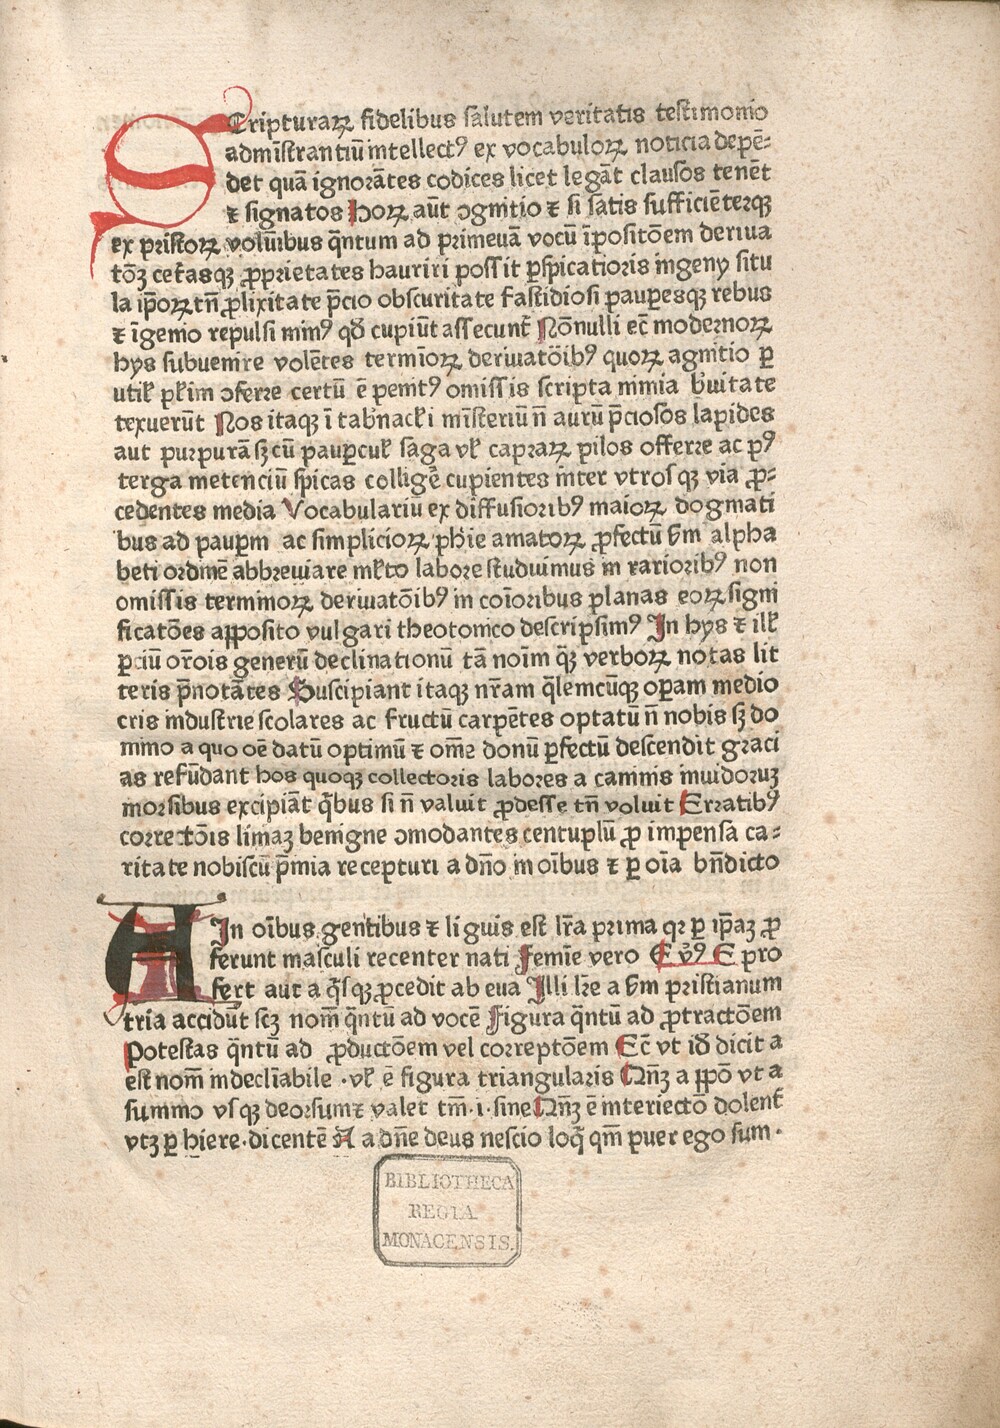 SCripturaꝝ fidelibus salutem veritatis testimonio
admīstrantiū intellectꝰ ex vocabuloꝝ noticia depē⸗
det quā ignorātes codices licet legāt clausos tenēt
⁊ signatos Hoꝝ aūt ꝯgnitio ⁊ si satis sufficiēterqꝫ
ex pristoꝝ volūībus q̄ntum ad primeuā vocū īpositōem deriua
tōꝫ cet̄asqꝫ ꝓprietates hauriri possit ꝑspicatioris ingenij situ
la ip̄oꝝ tn̄ ꝓlixitate p̄cio obscuritate fastidiosi pauꝑesqꝫ rebus
⁊ īgenio repulsi minꝰ qđ cupiūt assecunt̄ Nōnulli ec̄ modernoꝝ
hijs subuenire volētes termīoꝝ deriuatōibꝰ quoꝝ agnitio ꝑ
utił pł'im ꝯferre certū ē penitꝰ omissis scripta nimia b'uitate
texuerūt Nos itaqꝫ ī tab'nacłi mīsteriū n̄ aurū p̄ciosos lapides
aut purpurā sꝫ cū pauꝑcuł saga vł capraꝝ pilos offerre ac pꝰ
terga metenciū spicas colligē cupientes inter vtrosqꝫ via ꝓ⸗
cedentes media Vocabulariū ex diffusioribꝰ maioꝝ dogmati
bus ad pauꝑm ac simplicioꝝ ph'ie amatoꝝ ꝓfectū s̄m alpha
beti ordinē abbreuiare młto labore studuimus in rarioribꝰ non
omissis terminoꝝ deriuatōibꝰ in coīoribus planas eoꝝ signi
ficatōes apposito vulgari theotonico descripsimꝰ In hijs ⁊ ill'
ꝑciū or̄ois generū declinationū tā noīm q̄ꝫ verboꝝ notas lit
teris p̄notātes Suscipiant itaqꝫ nr̄am q̄lemcūqꝫ oꝑam medio
cris industrie scolares ac fructū carpētes optatū n̄ nobis sꝫ do
mino a quo oē datū optimū ⁊ om̄e donū ꝑfectū descendit graci
as refūdant hos quoqꝫ collectoris labores a caninis inuidoruꝫ
morsibus excipiāt q̄bus si n̄ valuit ꝓdesse tn̄ voluit Erratibꝰ
correctōis limaꝫ benigne ꝯmodantes centuplū ꝓ impensa ca⸗
ritate nobiscū p̄mia recepturi a dn̄o in oībus ⁊ ꝑ oīa bn̄dicto
A In oībus gentibus ⁊ liguis est lr̄a prima qꝛ ꝑ ip̄aꝫ ꝓ
ferunt masculi recenter nati Femīe vero E v̄ꝰ E pro
fert aut a q̄sqꝫ ꝓcedit ab eua Illi lr̄e a s̄m pristianum
tria accidūt scꝫ nom̄ q̄ntū ad vocē Figura q̄ntū ad ꝓtractōem
Potestas q̄ntū ad ꝓductōem vel correptōem Ec̄ vt iđ dicit a
est nom̄ indecliabile · vł ē figura triangularis Qn̄ꝫ a ppō vt a
summo vsqꝫ deorsum ⁊ valet tm̄ · i · sine Qn̄ꝫ ē interiectō dolent̄
vtꝫ ꝑ hiere · dicentē A a a dn̄e deus nescio loq̄ qm̄ puer ego sum ·
BIBLIOTHECA
REGIA
MONACENSIS.